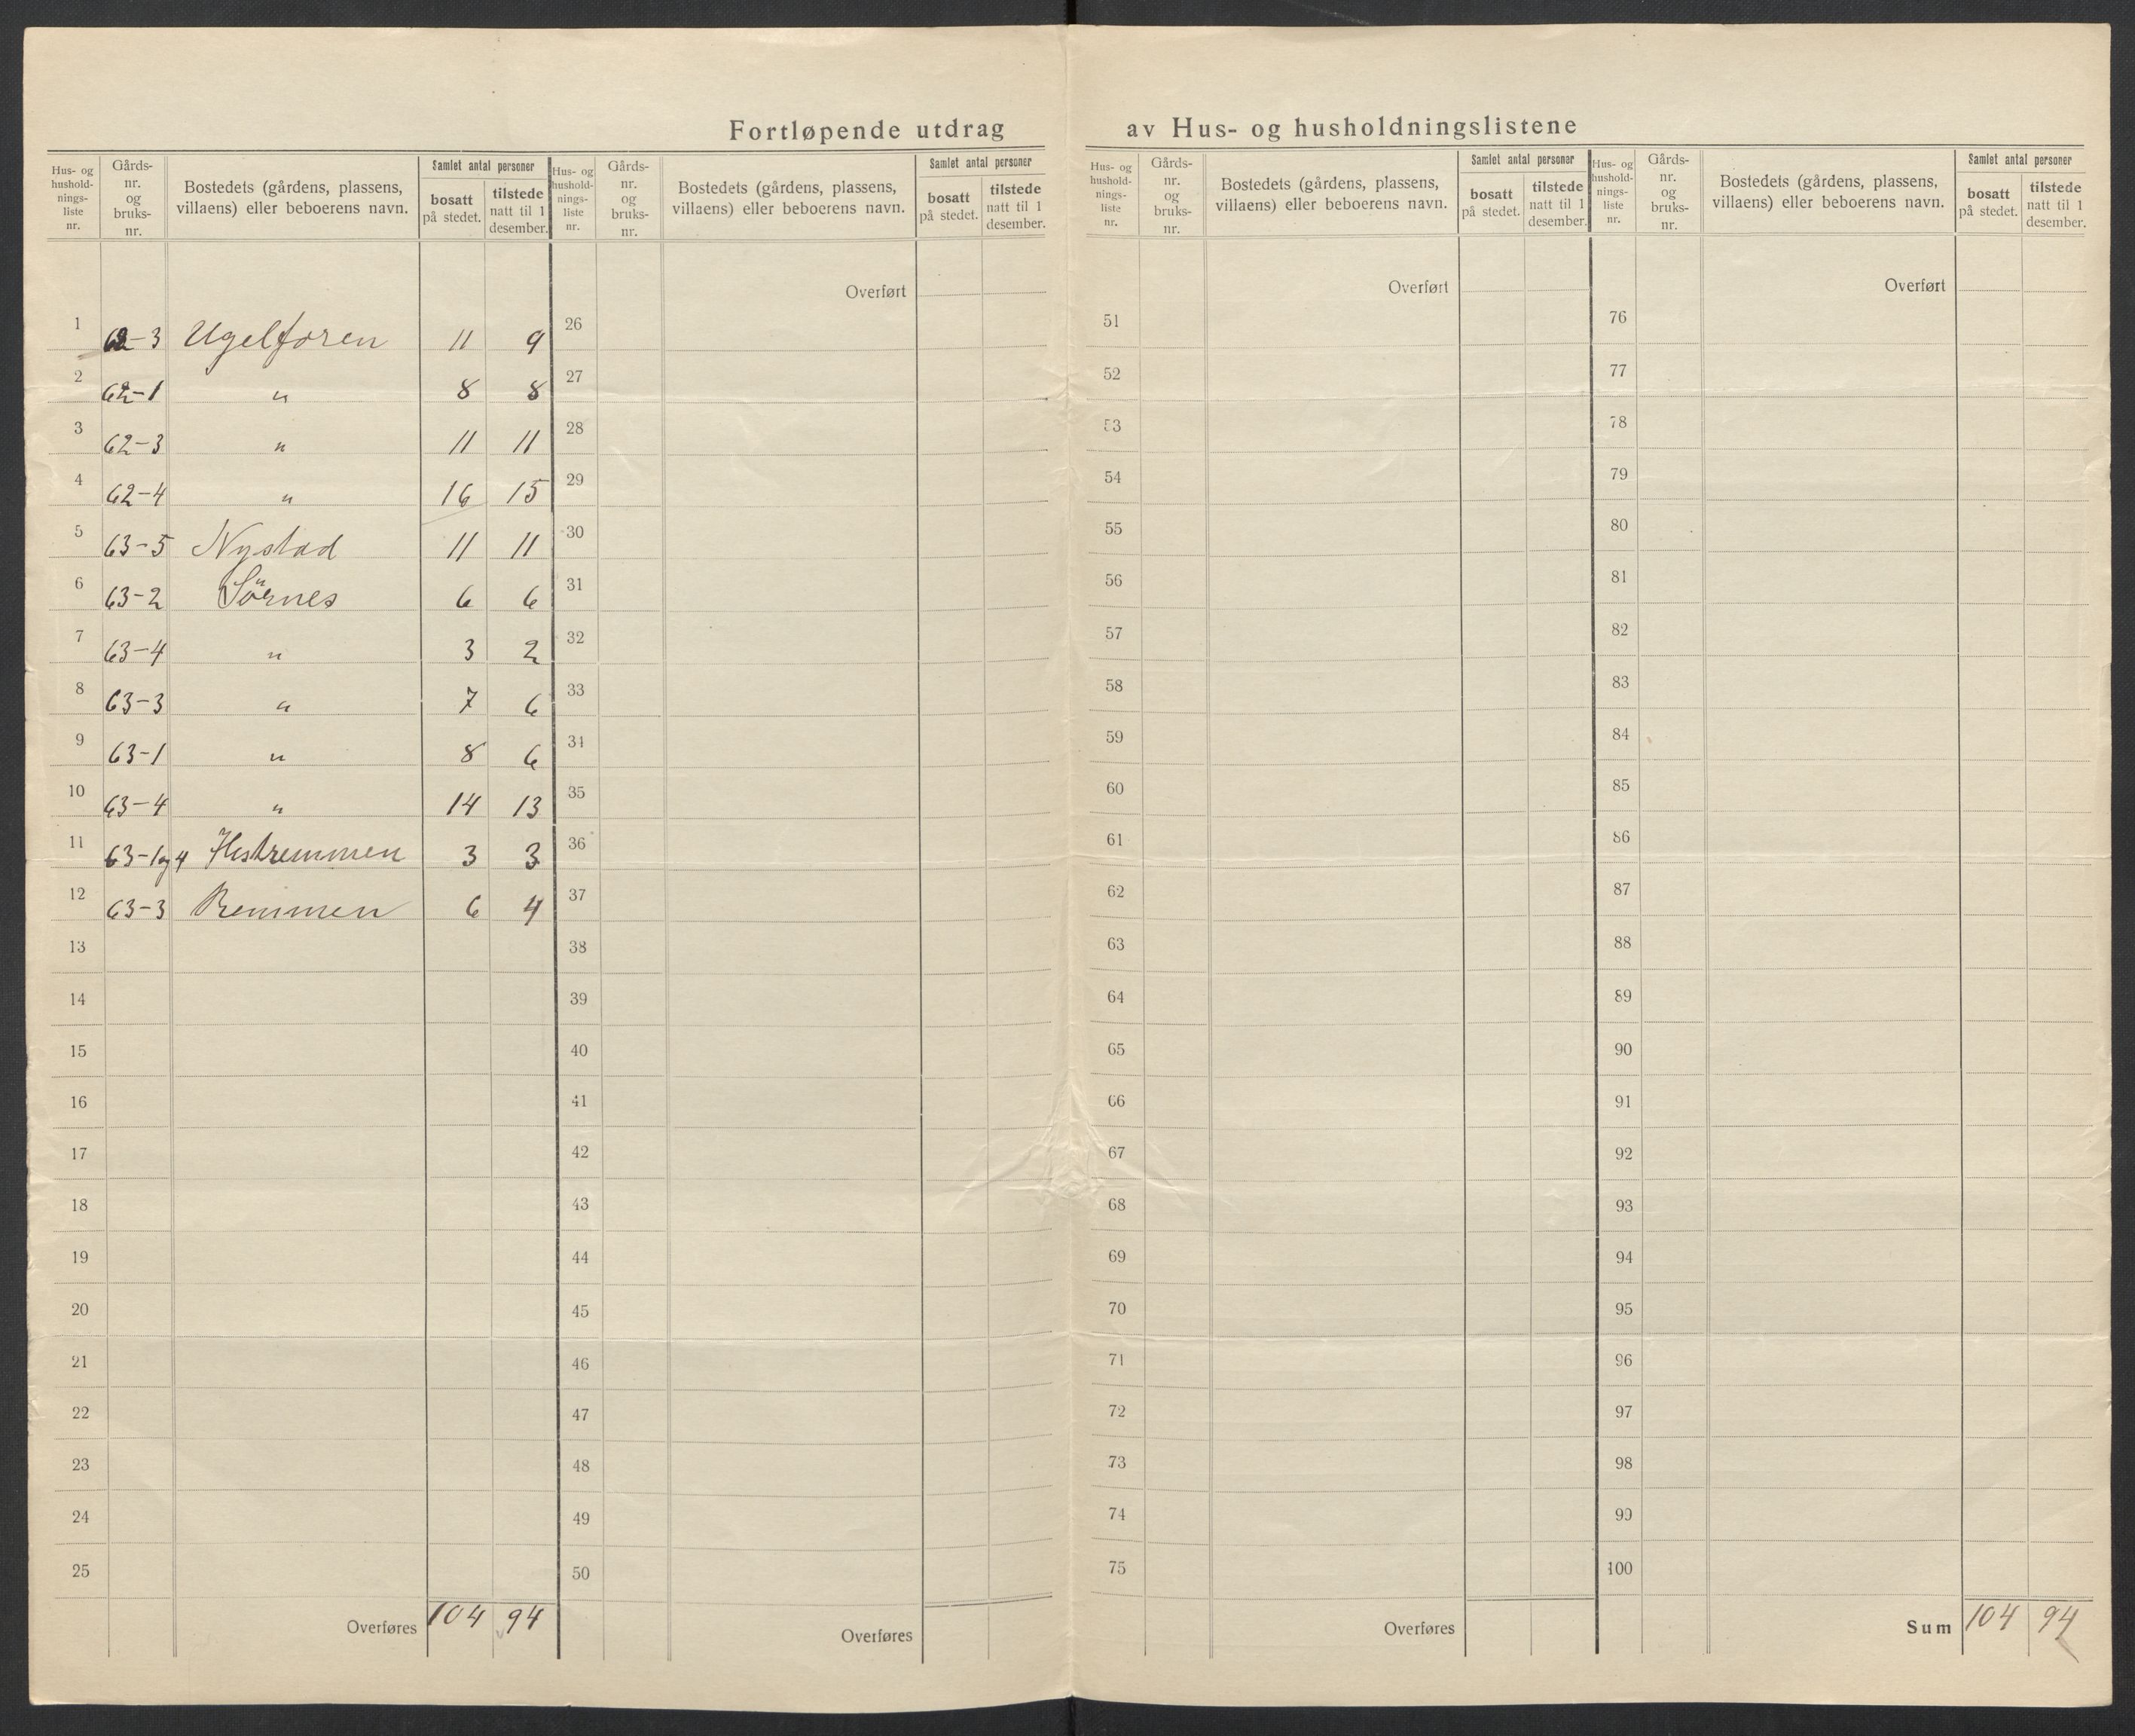 Fortløpende utdrag av Hus- og husholdningslistene
Hus- og husholdnings-liste nr. Gårds-nr. og bruks-nr. Bostedets (gårdens, plassens, villaens) eller beboerens navn. Samlet antal personer bosatt på stedet. tilstede natt til 1 desember.
Hus- og husholdnings-liste nr. Gårds-nr. og bruks-nr. Bostedets (gårdens, plassens, villaens) eller beboerens navn. Samlet antal personer bosatt på stedet. tilstede natt til 1 desember.
Hus- og husholdnings-liste nr. Gårds-nr. og bruks-nr. Bostedets (gårdens, plassens, villaens) eller beboerens navn. Samlet antal personer bosatt på stedet. tilstede natt til 1 desember.
Hus- og husholdnings-liste nr. Gårds-nr. og bruks-nr. Bostedets (gårdens, plassens, villaens) eller beboerens navn. Samlet antal personer bosatt på stedet. tilstede natt til 1 desember.
Overført Overført Overført
1 62-3 Ugelforen 11 9 26 51 76
2 62-1 " 8 8 27 52 77
3 62-3 " 11 11 28 53 78
4 62-4 " 16 15 29 54 79
5 63-5 Nystad 11 11 30 55 80
6 63-2 Sörnes 6 6 31 56 81
7 63-4 " 3 2 32 57 82
8 63-3 " 7 6 33 58 83
9 63-1 " 8 6 34 59 84
10 63-4 " 14 13 35 60 85
11 63-1og4 Hestremmen 3 3 36 61 86
12 63-3 Remmen 6 4 37 62 87
13 38 63 88
14 39 64 89
15 40 65 90
16 41 66 91
17 42 67 92
18 43 68 93
19 44 69 94
20 45 70 95
21 46 71 96
22 47 72 97
23 48 73 98
24 49 74 99
25 50 75 100
Overføres 104 94 Overføres Overføres Sum 104 94